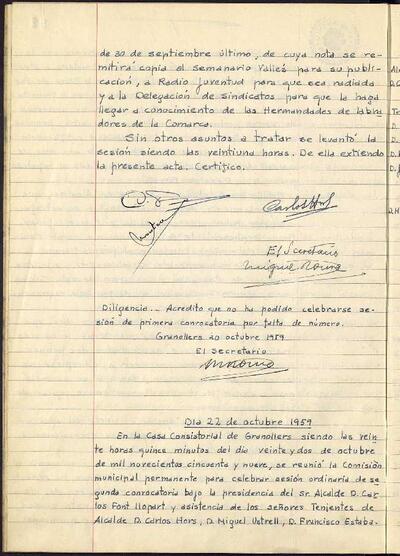 de 30 de septiembre último, de cuya nota se re-
mitirá copia al semanario Vallés para su publi-
cación, a Radio Juventud para que sea radiada
y a la Delegación de Sindicatos para que la haga
llegar a conocimiento de las Hermandades de Labra
dores de la Comarca.
Sin otros asuntos a tratar se levantó la
sesión siendo las veintiuna horas. De ella extiendo
la presente acta. Certifico.
Carlos Hors
El Secretario
Diligencia._ Acredito que no ha podido celebrarse se-
sión de primera convocatoria por falta de número.
Granollers 20 octubre 1959
El Secretario
Día 22 de octubre 1959
En la Casa Consistorial de Granollers siendo las vein
te horas quince minutos del día veinte y dos de octubre
de mil novecientos cincuenta y nueve, se reunió la Comisión
municipal permanente para celebrar sesión ordinaria de se-
gunda convocatoria bajo la presidencia del Sr. Alcalde D. Car
los Font Llopart y asistencia de los señores Tenientes de
Alcalde D. Carlos Hors, D. Miguel Ustrell, D. Francisco Estaba-